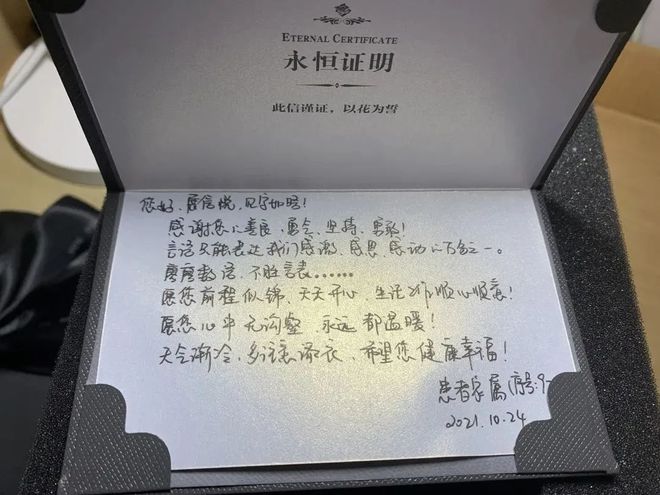 ETERNAL CERTIFICATE
永恒证明
此信谨证，以花为誓
您好，屠信悦，见字如晤！
感谢您的善良、勇气、坚持、奉献！
言语只能表达我们感激、感恩、感动的百分之一。
寥寥数语，不胜言表……
愿您前程似锦，天天开心，生活工作顺心顺意！
愿您心中无沟壑，永远都温暖！
天气渐冷，多注意添衣，希望您健康幸福！
患者家属（序号：9-
2021.10.24